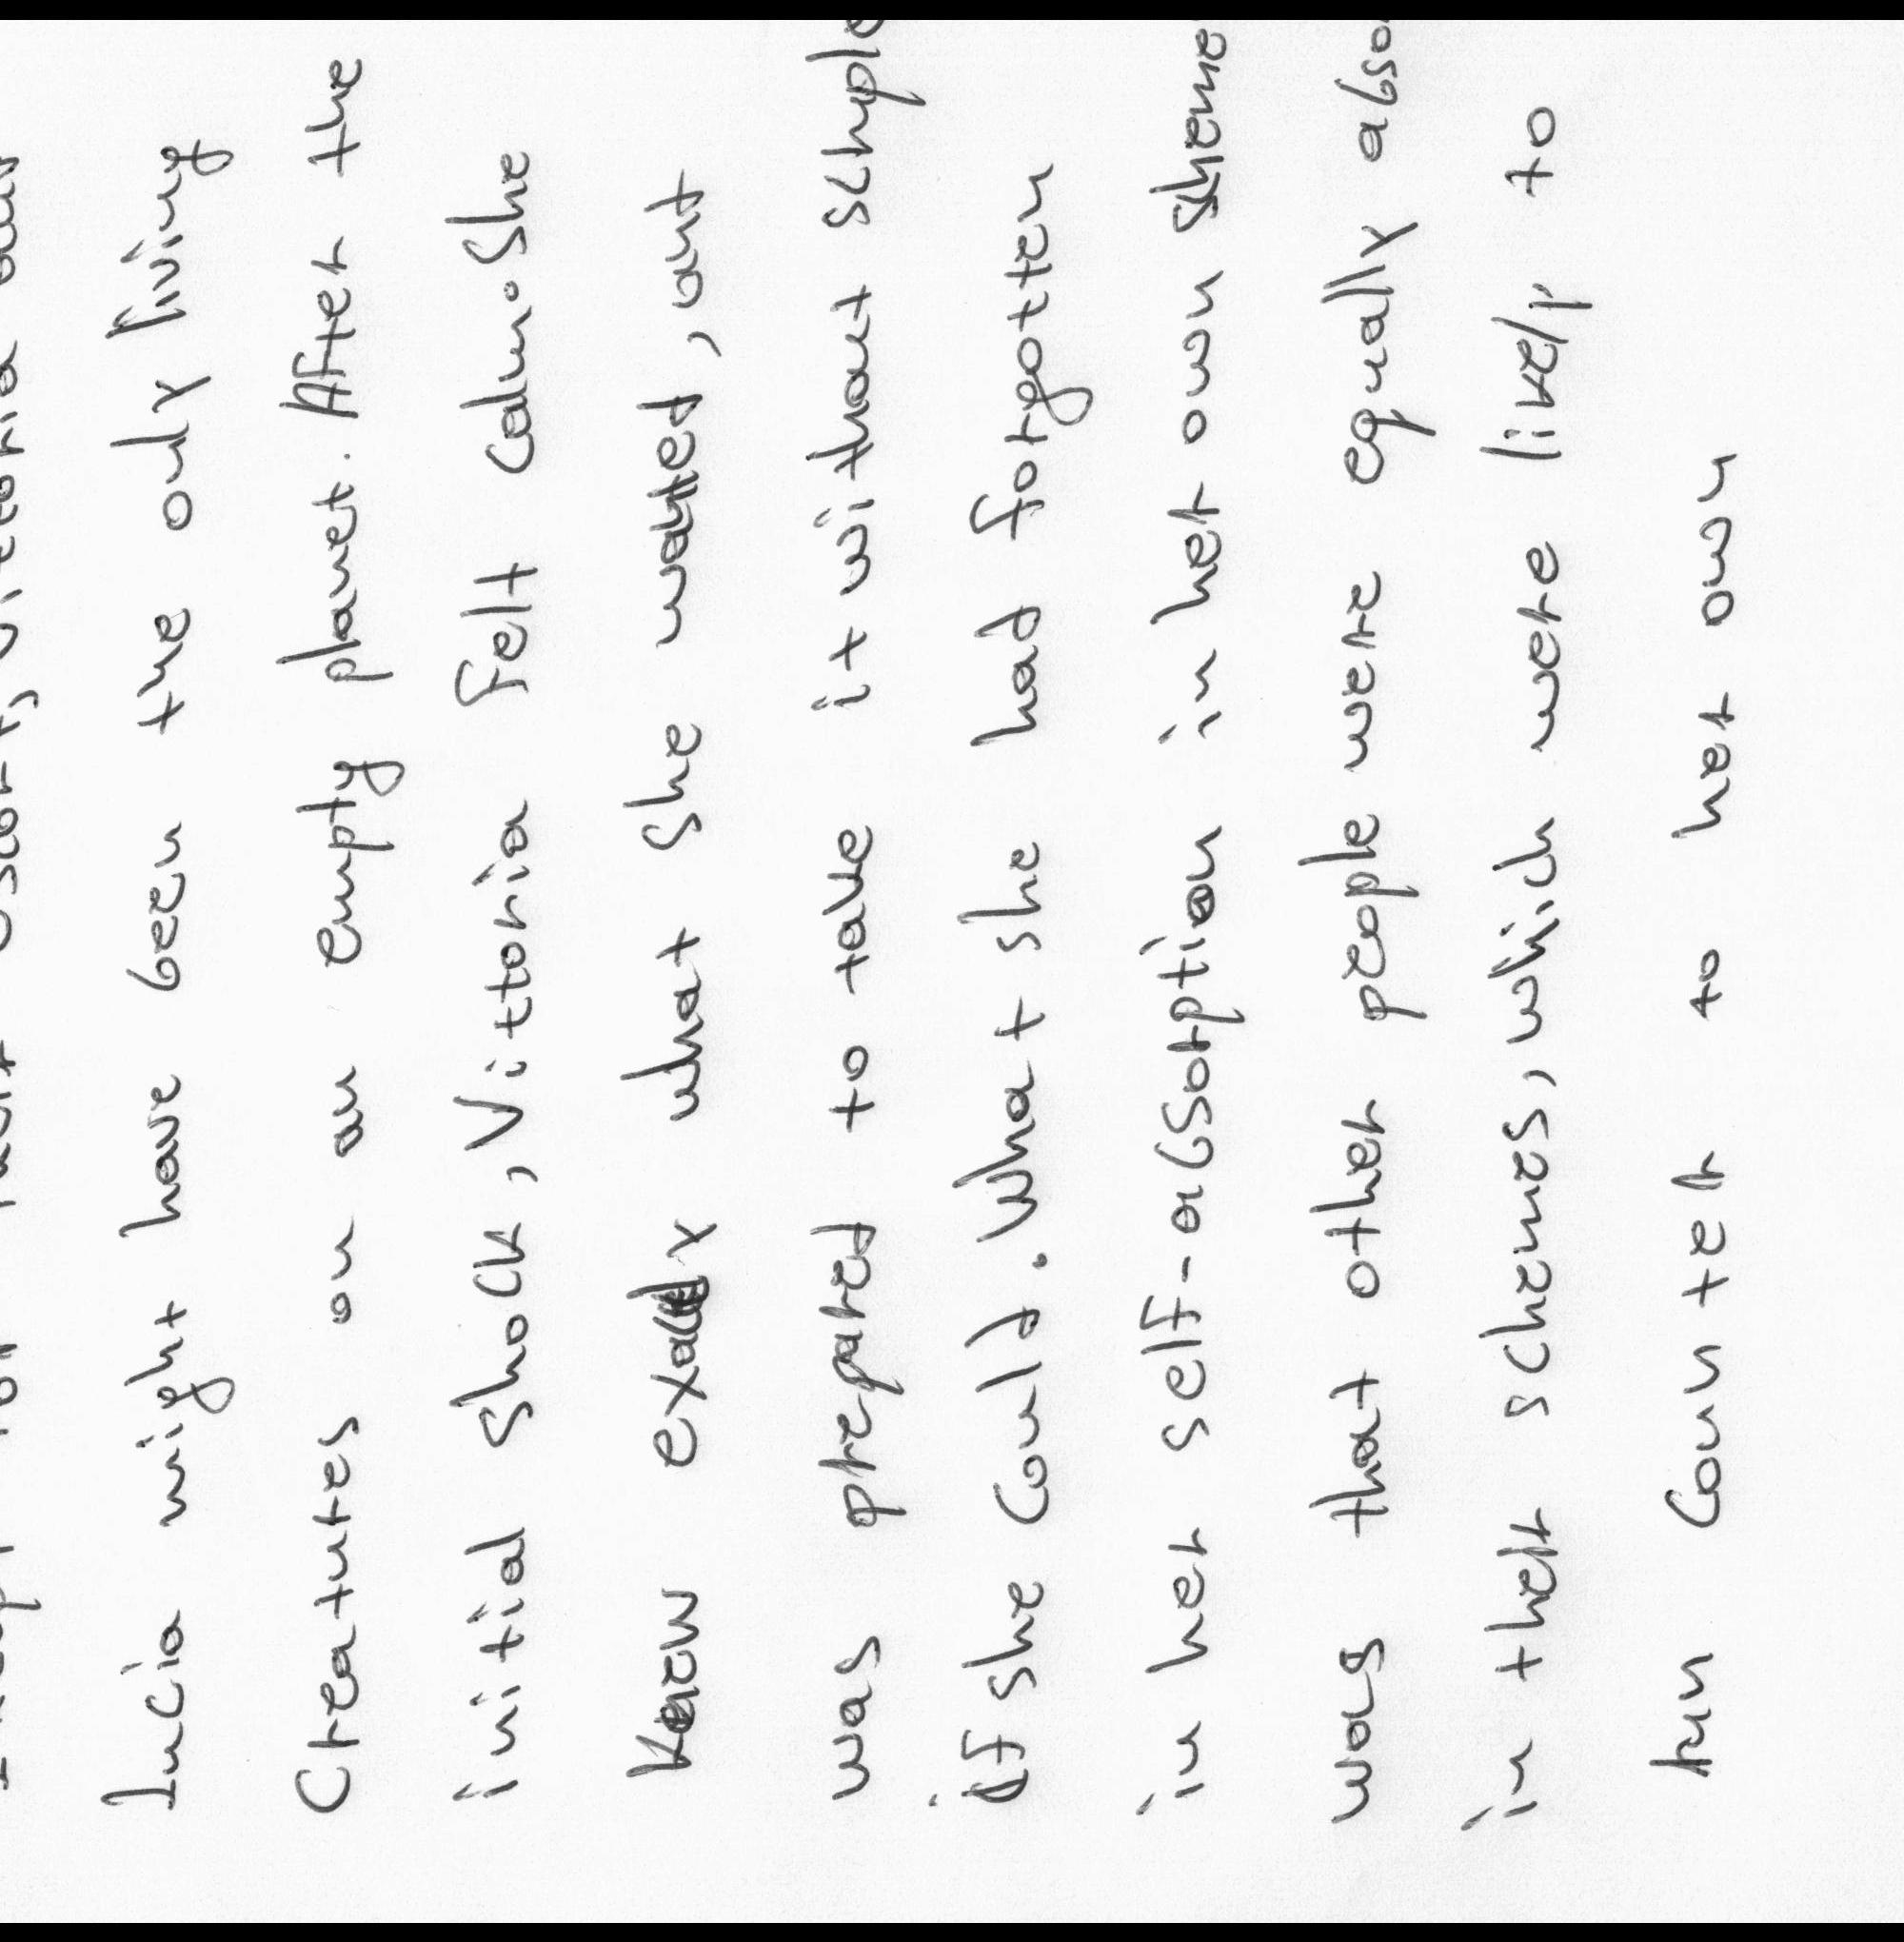 Lucia might have been the only living
Creatures on an empty planet. After the
initial shock, Vittoria felt calm. She
knew exactly what she wanted, and
was prepared to take it without scruple
if she could. What she had forgotten
in her self-absorption in her own sheme
was that other people were equally abso
in their schemes, which were likely to
run Counter to her own